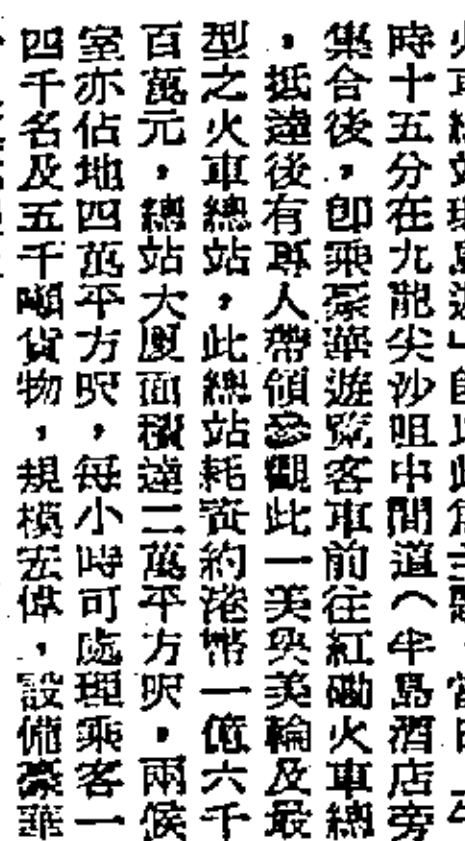 時十五分在九龍尖沙咀中間道（半島酒店旁
集合後，卽乘豪華遊覽客車前往紅磡火車總
，抵達後有專人帶領參觀此一美輪及最
型之火車總站，此總站耗資約港幣一億六千
百萬元，總站大厦面積達二萬平方呎，兩候
室亦佔地四萬平方呎，每小時可處理乘客一
四千名及五千噸貨物，規模宏偉，設備豪華